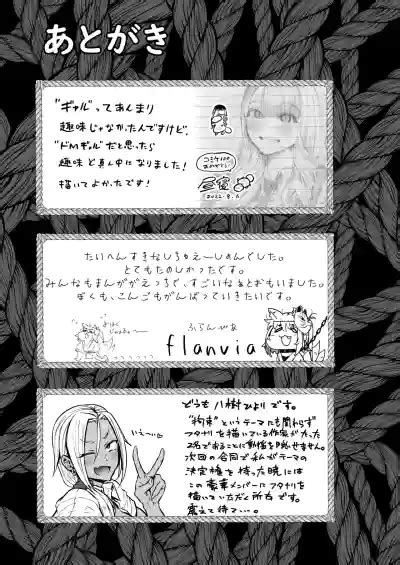 あとがき
"ギャル"ってあんまり
趣味じゃなかったんですけど、
"ドMギャル"だと思ったら
趣味ど真ん中になりました!
描いてよかったです!
コミケ100
おめでとう
2022.8.6
たいへんすきなしちゅえーしょんでした。
とてもたのしかったです。
みんなもまんががえっちで、すごいなぁとおもいました。
ぼくも、こんごもがんばっていきたいです。
ふらんびあ
flanvia
いえーい
どうも八樹ひよりです。
"拘束"というテーマにも関わらず
フタナリを描いている作家が
2名であることに動揺を隠せません。
次回の合同で私がテーマの
決定権を持った暁には
この豪華メンバーにフタナリを
描いていただく所存です。
震えて待て…。